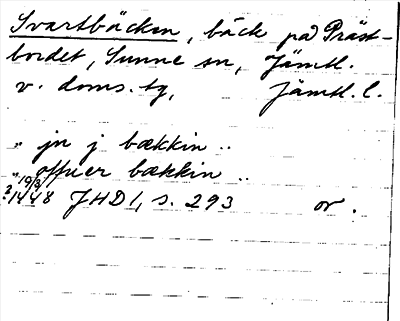 Svartbäcken, bäck på Präst-
bordet, Sunne sn, Jämtl.
v. doms. tg, Jämtl. l.
" jn j bækkin ..
" offuer bækkin ..
19/3 1448 JHD I, s. 293 or.